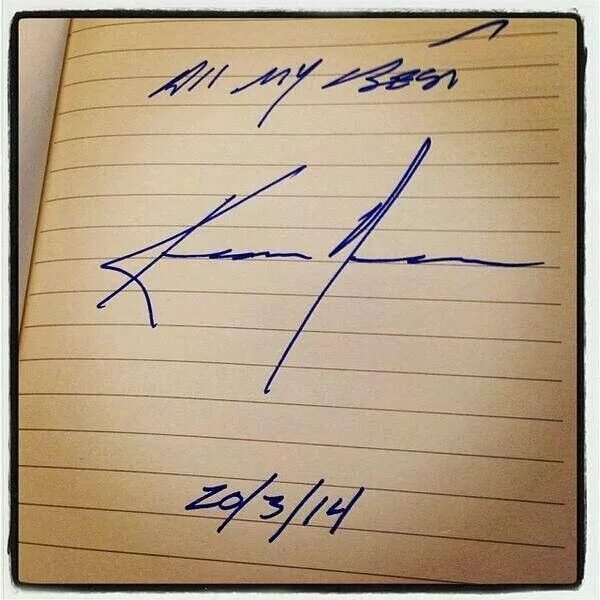 All MY BEST
20/3/14